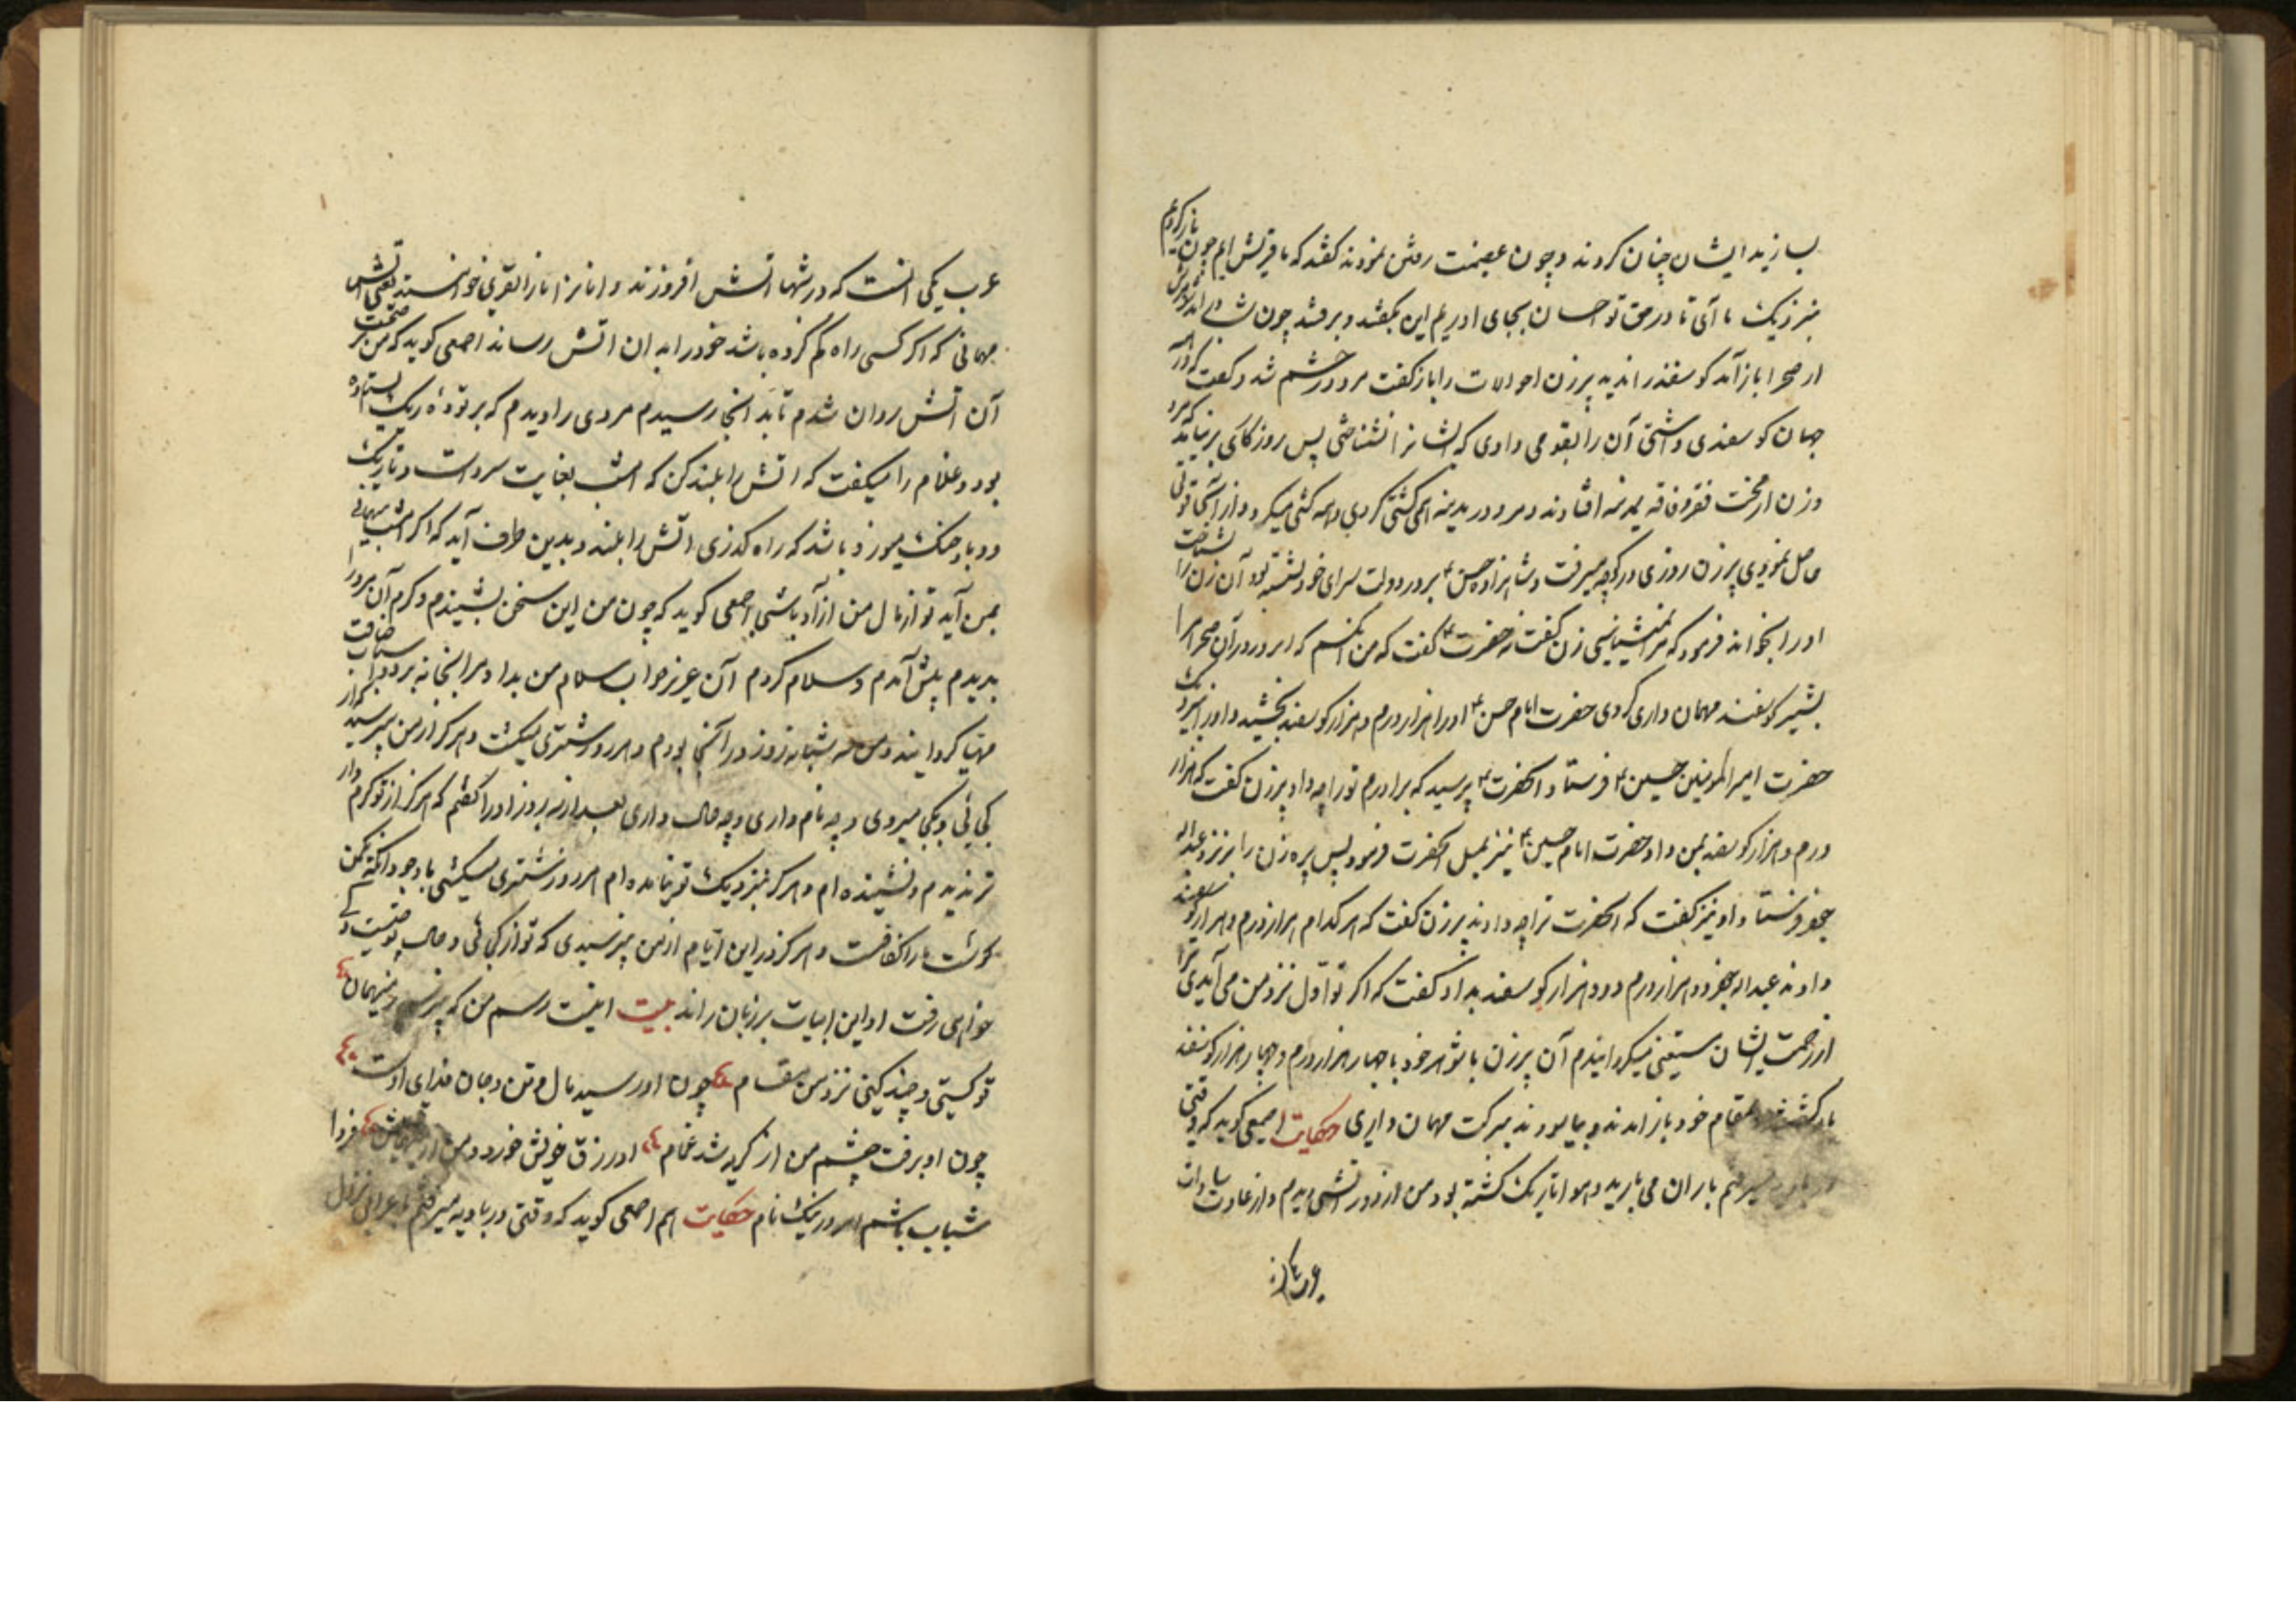 بسازید ایشان چنان کردند و چون عزیمت رفتن نمودند گفتند که ما قریش ایم چون باز گردیم
بنزدیک ما آی تا در حق تو احسان بجای اوریم این بگفتند و برفتند چون شوهرش
از صحرا باز آمد گوسفند را ندید پیرزن احوالات را باز گفت مرد در خشم شد و گفت که در همه
جهان گوسفندی داشتی آن را بقومی دادی که ایشانرا نشناختی پس روزگاری برنیامد که مرد
و زن از محنت فقر و فاقه بمدینه افتادند و مرد در مدینه و از آنجا قوتی
حاصل نمودی پیرزن روزی در کوچه میرفت و شاهزاده حسن بر در دولت سرای خود نشسته بود آن زن را بشناخت
اورا بخواند فرمود که مرا میشناسی زن گفت نه حضرت گفت که من انکسم که در آن صحرا مرا
بشیر گوسفند مهمان داری کردی حضرت امام حسن اورا هزار درم و هزار گوسفند بخشید و اورا بنزدیک
حضرت امیر المومنین حسین فرستاد انحضرت پرسید که برادرم تورا چه داد پیرزن گفت که هزار
درم و هزار گوسفند بمن داد حضرت امام حسین نیز بمثل انحضرت فرمود پس پیره زن را بنزد عبداله
جعفر فرستاد او نیز گفت که انحضرت ترا چه دادند پیرزن گفت که هر کدام هزار درم و هزار گوسفند
دادند عبداله جعفر دو هزار درم و دو هزار گوسفند بداد گفت که اگر تو اول نزد من می آیدی ترا
از زحمت ایشان مستغنی میگردانیدم آن پیرزن با شوهر خود با چهار هزار درم و چهار هزار گوسفند
باز گشتند بمقام خود باز امدند و بیاسودند ببرکت مهمان داری حکایت اصمعی گوید که وقتی
میرفتم باران می بارید و هوا تاریک گشته بود من از دور اتشی دیدم و از عادت سادات
عرب یکی انست که در شبها اتش افروزند و انرا نار القری خوانند یعنی اتش
مهمانی که اگر کسی راه گم کرده باشد خود را به ان اتش رساند اصمعی گوید که من
آن اتش روان شدم تا بد انجا رسیدم مردی را دیدم که بر توده ریگ ایستاده
بود و غلام را میگفت که اتش را بلند کن که امشب بغایت سرد است و تاریک
و باد خنک میوزد باشد که راه گذری اتش را بیند و بدین طرف آید که اگر امشب مهمانی
بمن آید تو از مال من ازاد باشی اصمعی گوید که چون من این سخن بشنیدم و کرم آن مرد را
بدیدم پیش آمدم و سلام کردم آن عزیز جواب سلام من بداد و مرا بخانه برد و اسباب ضیافت
مهیا گردانیدند و من سه شبانه روز در آنجا بودم و هر روز شتری میکشت و هرگز از من نپرسید که از
کجائی و بکجا میروی و چه نام داری و چه حال داری بعد از سه روز اورا گفتم که هرگز از تو کرم دار
تر ندیدم و نشنیده ام و هرگز بنزدیک تو نیامده ام هر روز شتری میکشی با وجود انکه یک من
گوشت مارا کفافست و هرگز در این ایام از من نپرسیدی که تو از کجائی و حال تو چیست و کی
خواهی رفت او این ابیات بر زبان راند بیت اینست رسم من که نپرسم ز میهمان
تو کیستی و چند کنی نزد من مقام چون او رسید مال و تن و جان فدای اوست
چون او برفت چشم من از گریه شد غمام او رزق خویش خورد و من از فردا
باشم امروز نیک نام حکایت هم اصمعی گوید که وقتی در بادیه میرفتم باعرابی نزول
عرب یکی